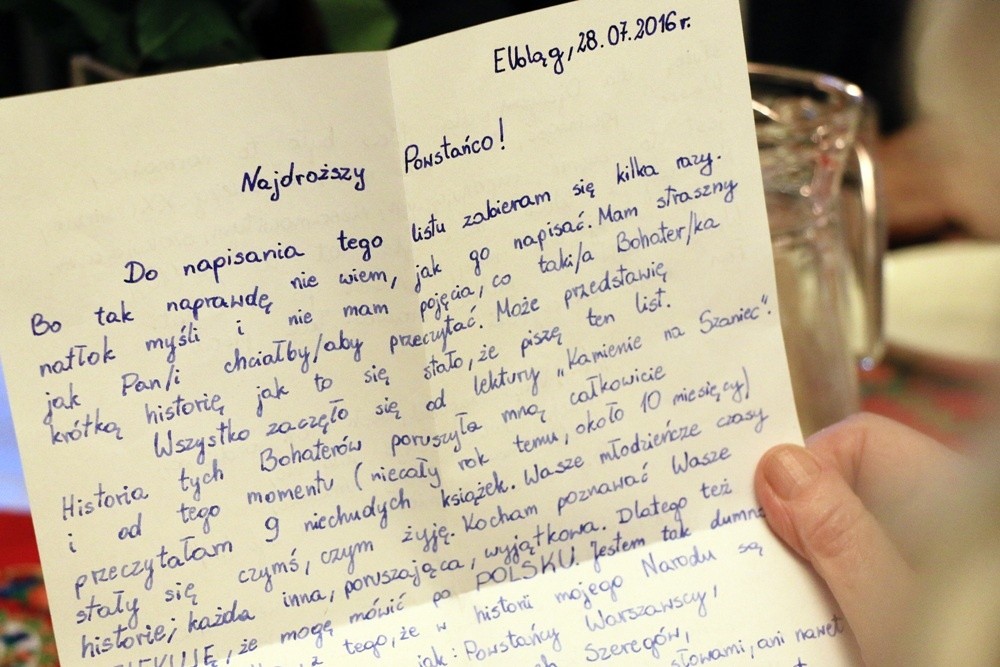 Elbląg, 28.07.2016 r.
Najdroższy Powstańco!
Do napisania tego listu zabieram się kilka razy.
Bo tak naprawdę nie wiem, jak go napisać. Mam straszny
natłok myśli i nie mam pojęcia, co taki/a Bohater/ka
jak Pan/i chciałby/aby przeczytać. Może przedstawię
krótką historię jak to się stało, że piszę ten list.
Wszystko zaczęło się od lektury "Kamienie na Szaniec".
Historia tych Bohaterów poruszyła mną całkowicie
i od tego momentu (niecały rok temu, około 10 miesięcy)
przeczytałam 9 niechudych książek. Wasze młodzieńcze czasy
stały się czymś, czym żyję. Kocham poznawać Wasze
historie; każda inna, poruszająca, wyjątkowa. Dlatego też
że mogę mówić po POLSKU. Jestem tak dumna
z tego, że w historii mojego Narodu są
jak: Powstańcy Warszawscy,
Szeregów,
słowami, ani nawet